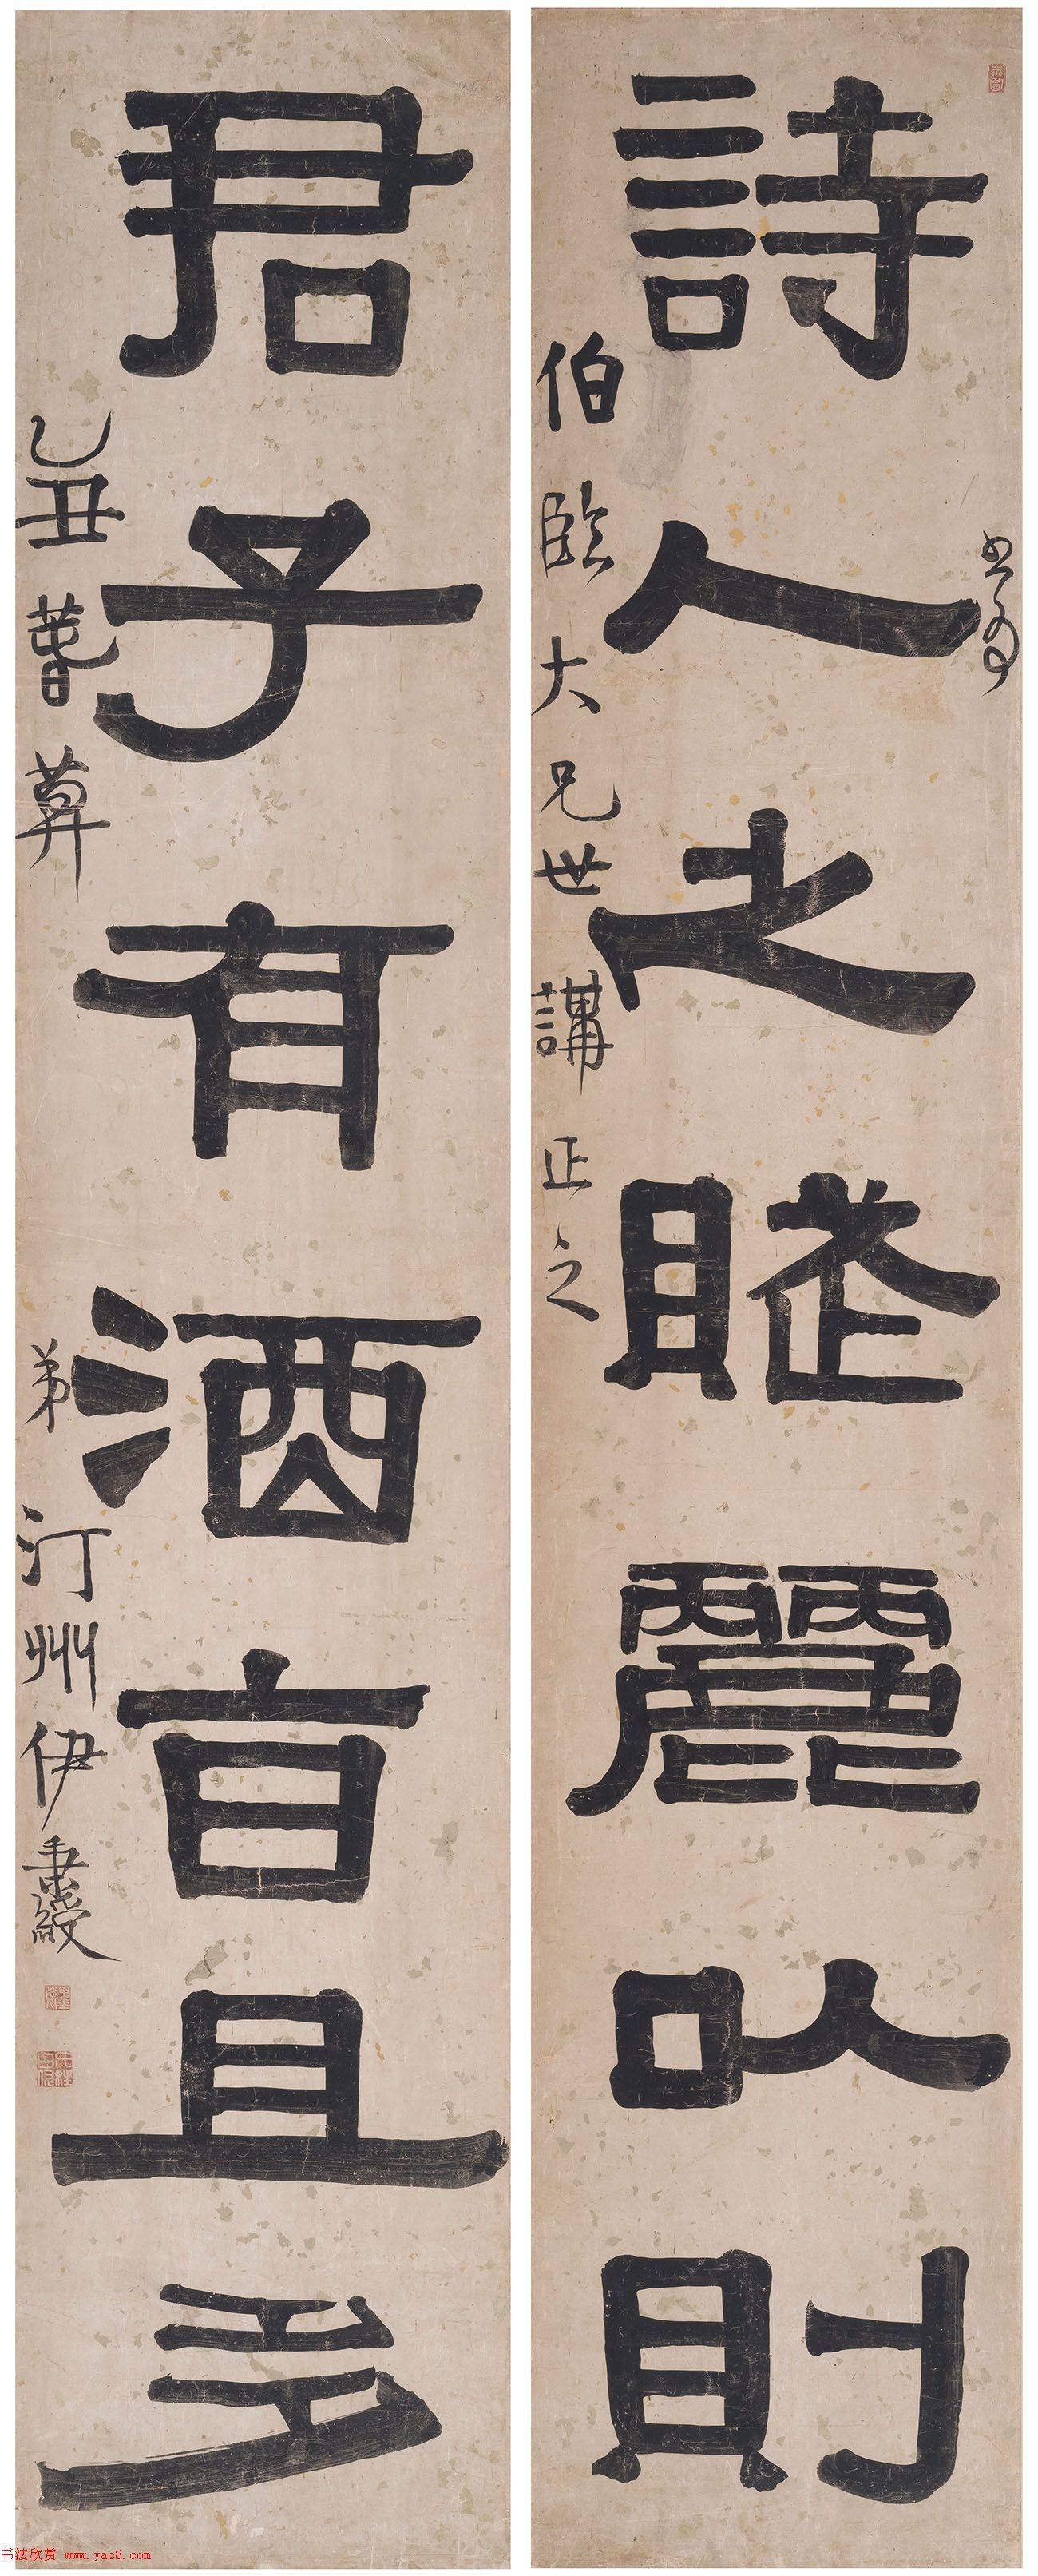 書為
詩人之賦麗以則
伯臨大兄世講正之
君子有酒旨且多
乙丑萅莫
弟汀州伊秉綬
书法欣赏 www.yac8.com